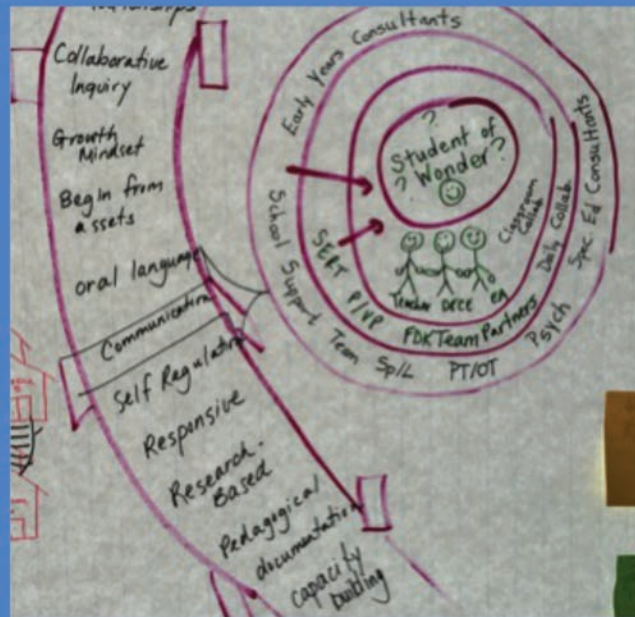 Collaborative
Inquiry
Growth
Mindset
Begin from
assets
oral language
Communication
Self Regulation
Responsive
Research-
Based
Pedagogical
documentation
capacity
building
Early Years Consultants
Spec. Ed Consultants
School Support Team
Sp/L
PT/OT
Psych
SERT
P/VP
FDK Team Partners
Daily Collab.
Classroom
Collab
?
Student of
? Wonder ?
Teacher
DECE
EA